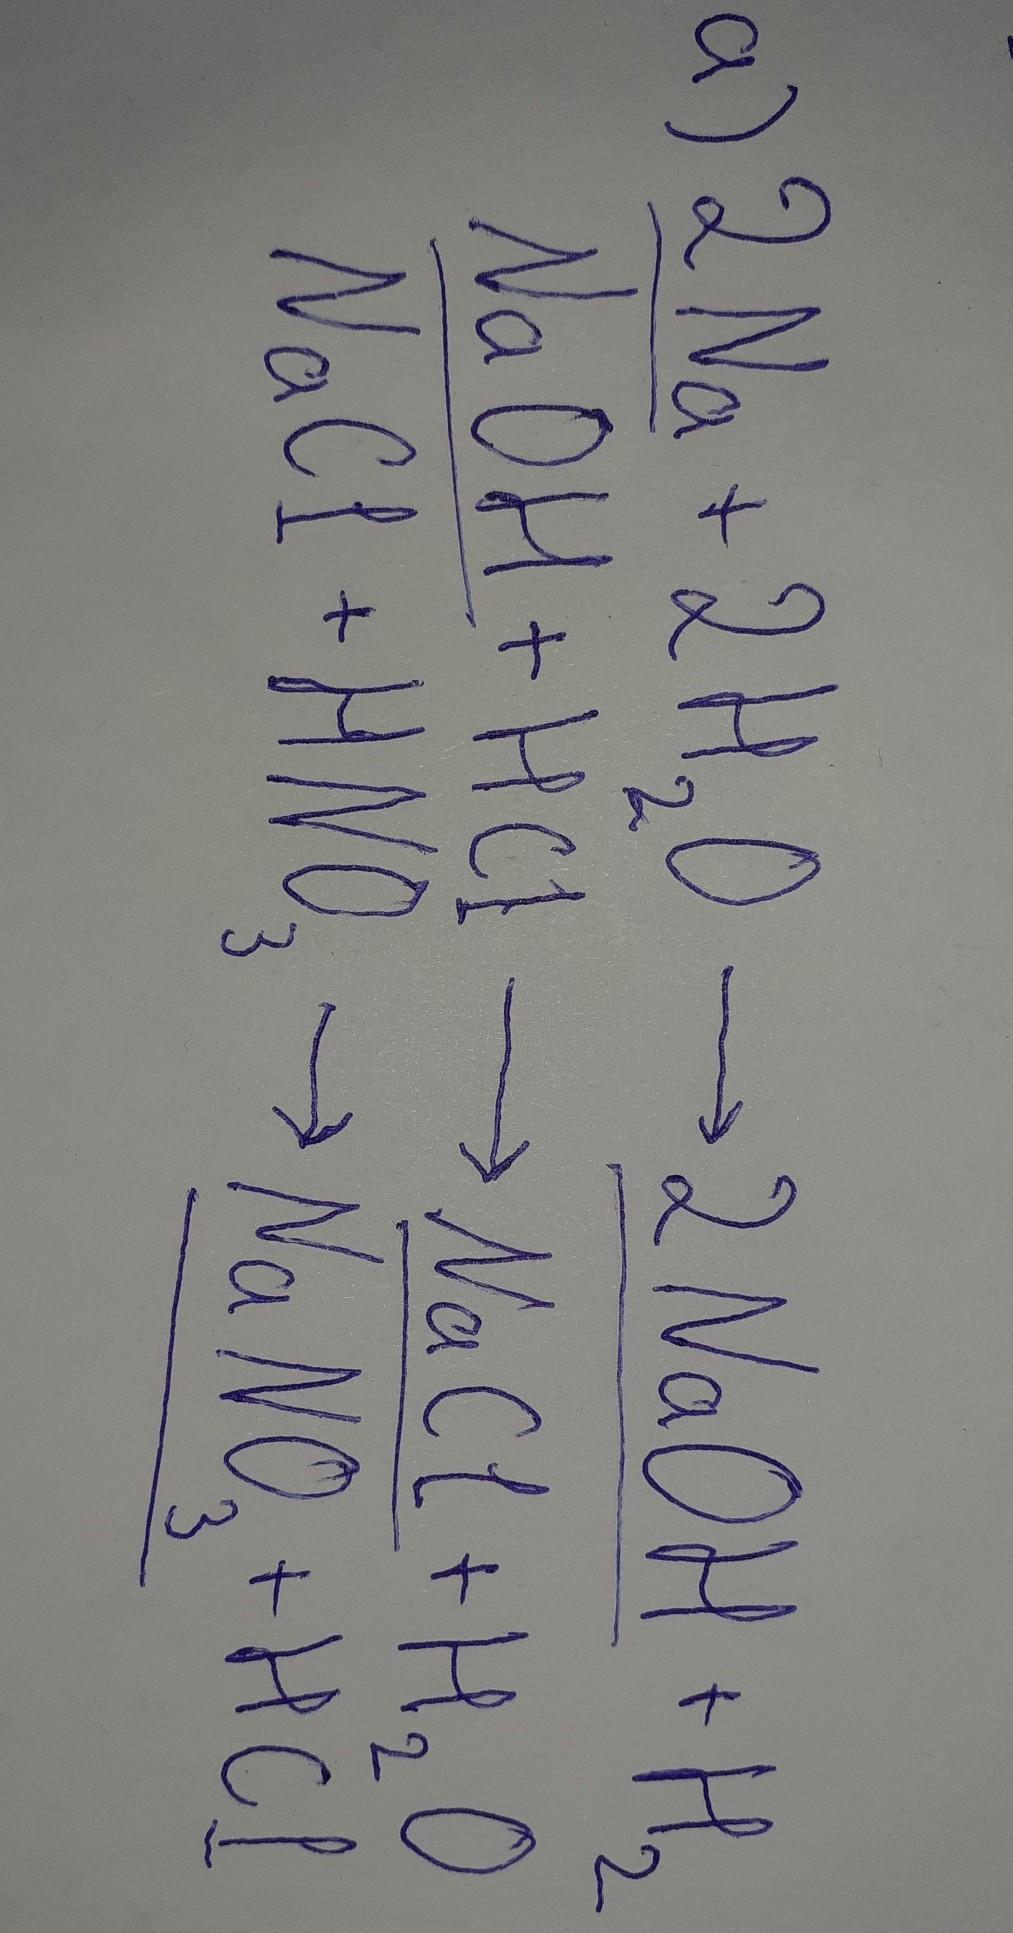 a) 2Na + 2H₂O → 2NaOH + H₂
NaOH + HCl → NaCl + H₂O
NaCl + HNO₃ → NaNO₃ + HCl